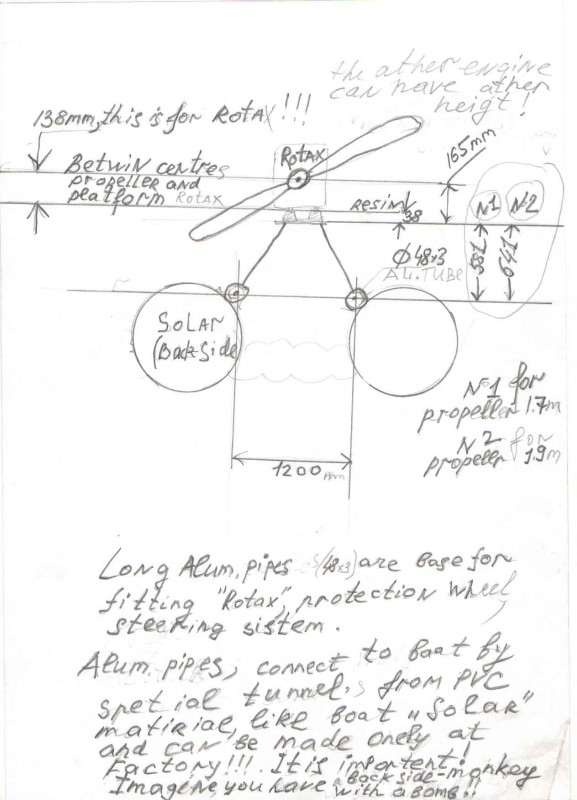 the ather engine
can have ather
heigt!
138mm, this is for RotAX!!!
Betwin centres
propeller and
platform Rotax
RotAX
165mm
resin
38
N1
N2
581
641
Ø48x3
AL. TUBE
SOLAR
(Back Side
N1 for
propeller 1.7m
N2 for
propeller 1.9m
1200 mm
Long Alum, pipes (48x3) are base for
fitting "Rotax", protection wheel,
steering sistem.
Alum. pipes, connect to boat by
spetial tunnels from PVC
matirial, like boat „Solar"
and can be made onely at
Factory!!! It is impontent!
Imagine you have a back side-monkey
with a bomb!!